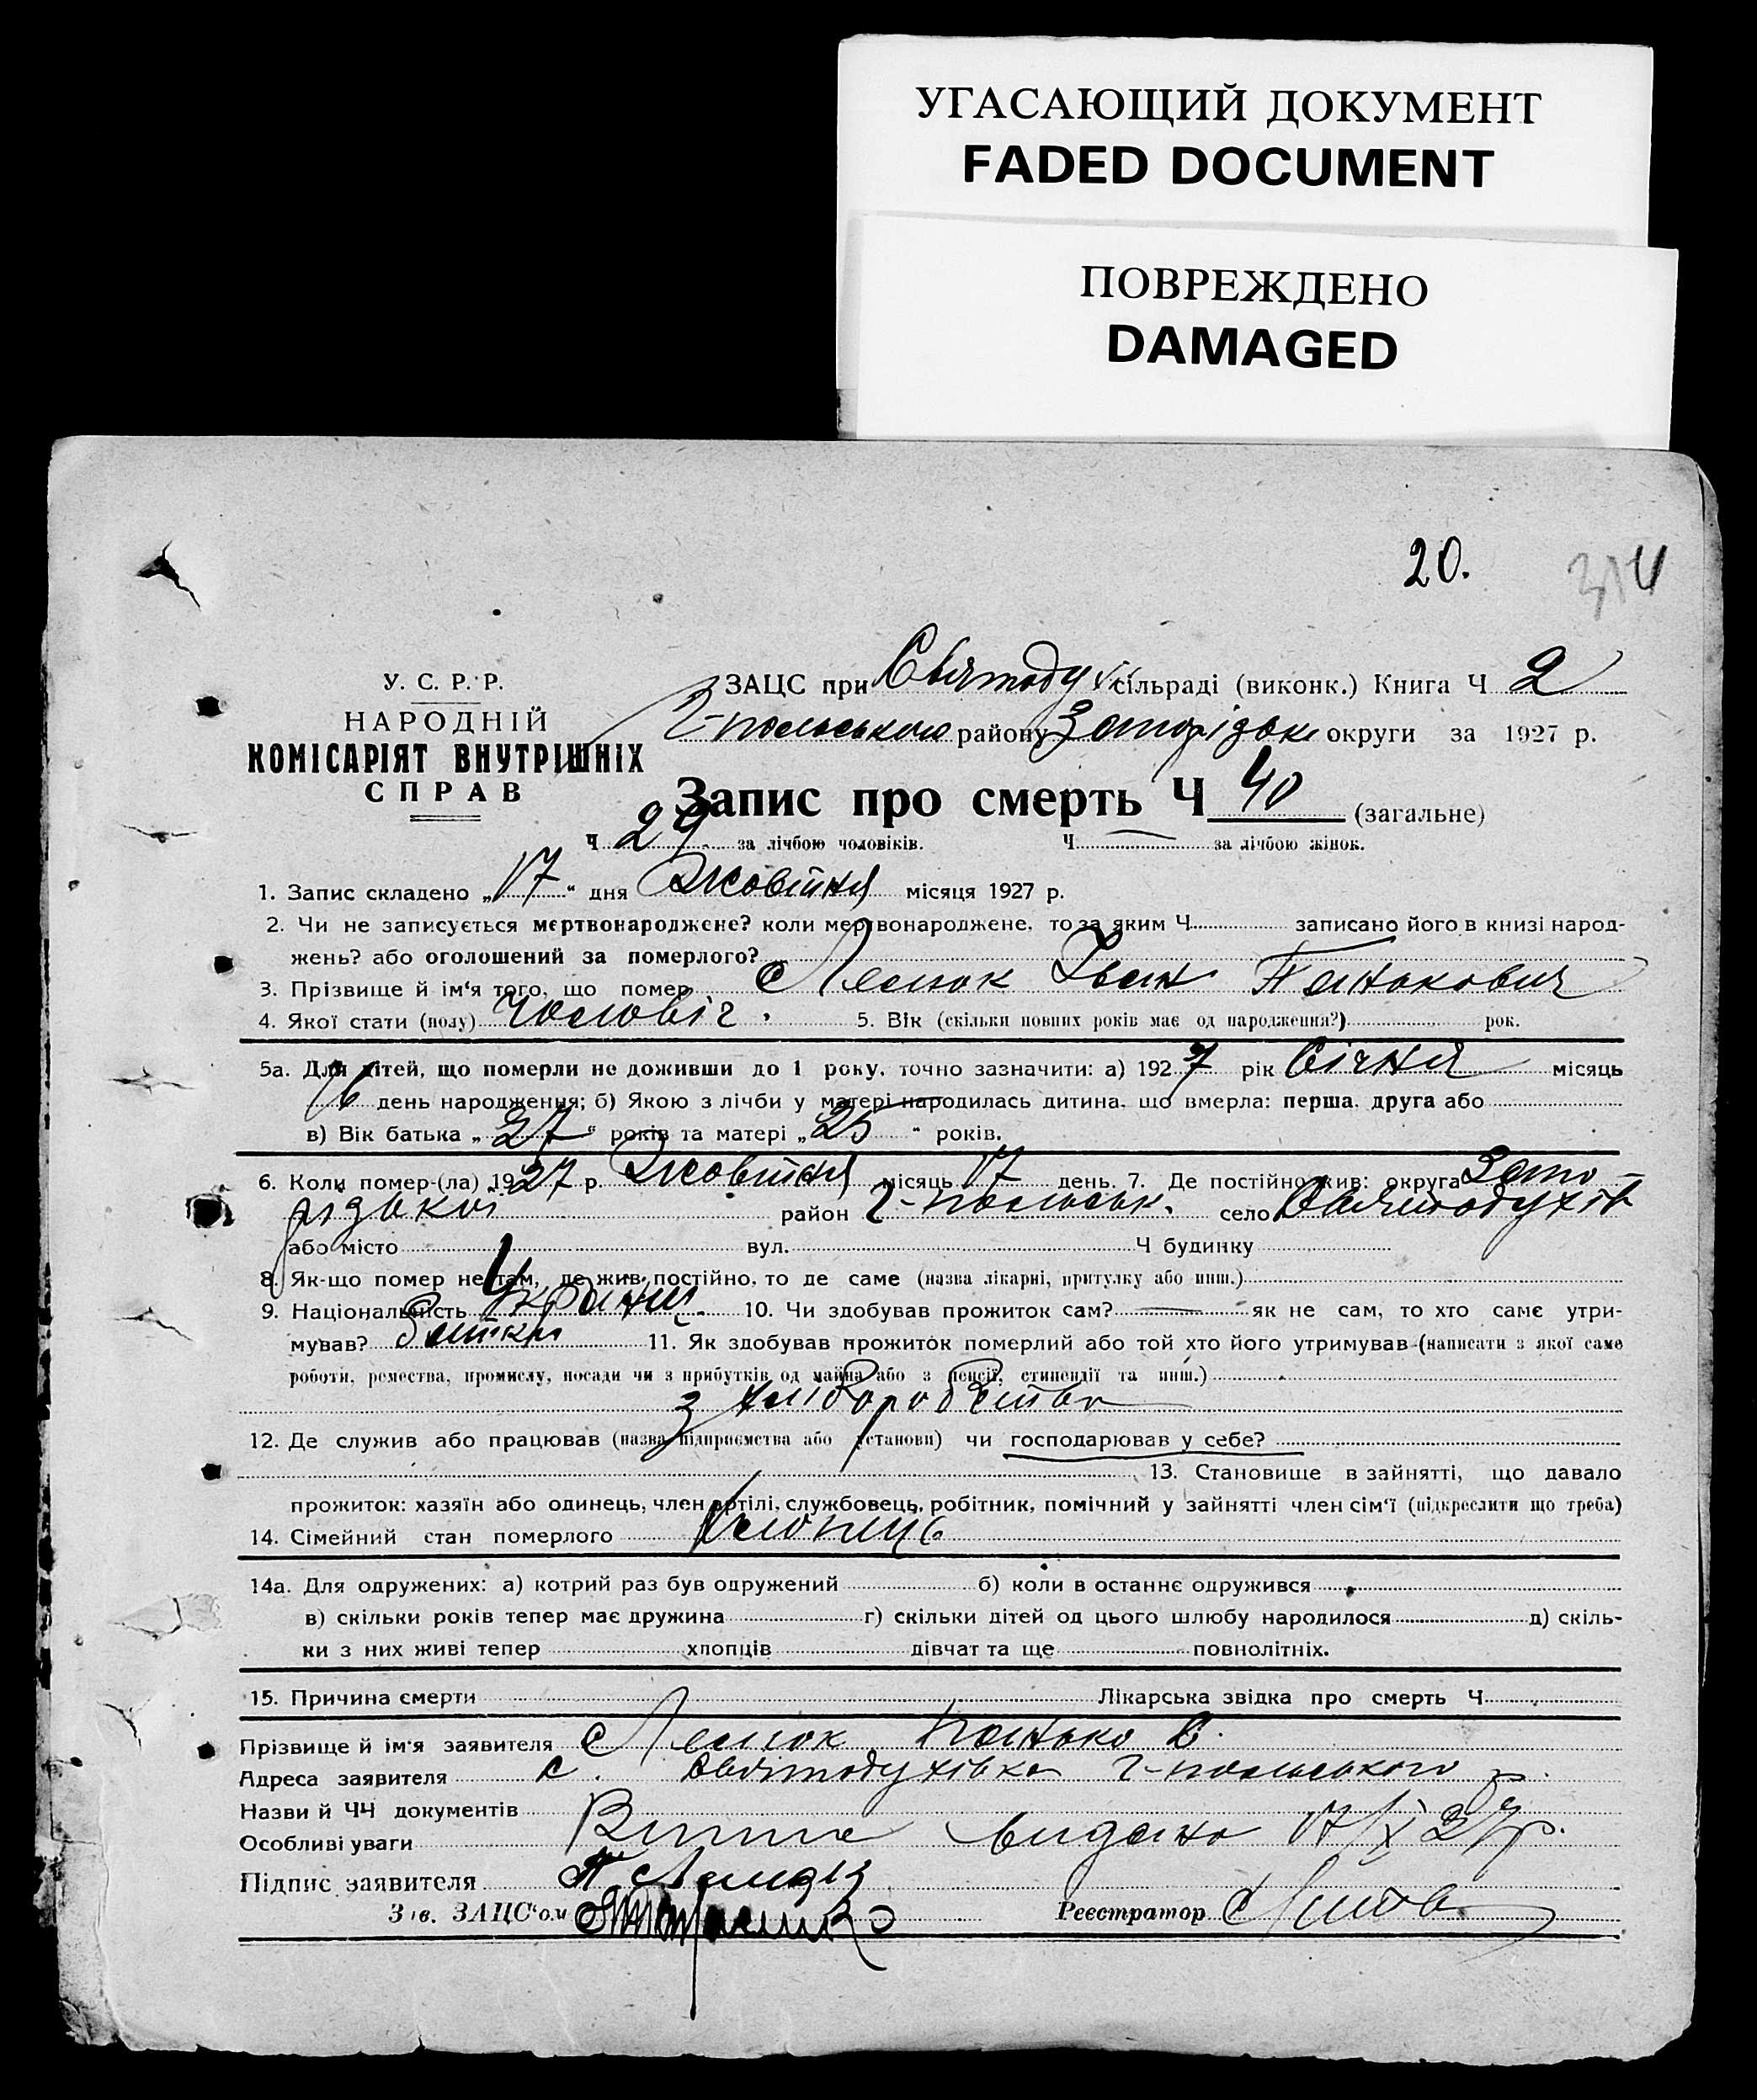 УГАСАЮЩИЙ ДОКУМЕНТ
FADED DOCUMENT
ПОВРЕЖДЕНО
DAMAGED
20.
314
У. С. Р. Р.
НАРОДНІЙ
КОМІСАРІЯТ ВНУТРІШНІХ
СПРАВ
ЗАЦС при Святодух сільраді (виконк.) Книга Ч 2
г-польського району Запорізьк округи за 1927 р.
Запис про смерть Ч 40 (загальне)
Ч 29 за лічбою чоловіків. Ч — за лічбою жінок.
1. Запис складено „17“ дня Жовтня місяця 1927 р.
2. Чи не записується мертвонароджене? коли мертвонароджене, то за яким Ч записано його в книзі народ-
жень? або оголошений за померлого?
3. Прізвище й ім'я того, що помер Іван Панькович
4. Якої стати (полу) Чоловіч. 5. Вік (скільки повних років має од народження?) рок.
5а. Для дітей, що померли не доживши до 1 року, точно зазначити: а) 1927 рік Січня місяць
16 день народження; б) Якою з лічби у матері народилась дитина, що вмерла: перша, друга або
в) Вік батька „27“ років та матері „25“ років.
6. Коли помер-(ла) 1927 р. Жовтня місяць 17 день. 7. Де постійно жив: округа Запо-
різькоі район г-польськ. село Святодухів
або місто вул. Ч будинку
8. Як-що помер не там, де жив постійно, то де саме (назва лікарні, притулку або инш.)
9. Національність Україн. 10. Чи здобував прожиток сам? — як не сам, то хто саме утри-
мував? Батьки 11. Як здобував прожиток померлий або той хто його утримував (написати з якої саме
роботи, ремества, промислу, посади чи з прибутків од майна або з пенсії, стипендії та инш.)
з хліборобства
12. Де служив або працював (назва підприємства або установи) чи господарював у себе?
13. Становище в зайнятті, що давало
прожиток: хазяїн або одинець, член артілі, службовець, робітник, помічний у зайнятті член сім'ї (підкреслити що треба)
14. Сімейний стан померлого Хлопець
14а. Для одружених: а) котрий раз був одружений б) коли в останнє одружився
в) скільки років тепер має дружина г) скільки дітей од цього шлюбу народилося д) скіль-
ки з них живі тепер хлопців дівчат та ще повнолітніх.
15. Причина смерти Лікарська звідка про смерть Ч
Прізвище й ім'я заявителя Панько С.
Адреса заявителя с. Святодухівка г-польського р.
Назви й ЧЧ документів
Особливі уваги видано 17/X 27 р.
Підпис заявителя
Зав. ЗАЦС'ом
Реєстратор